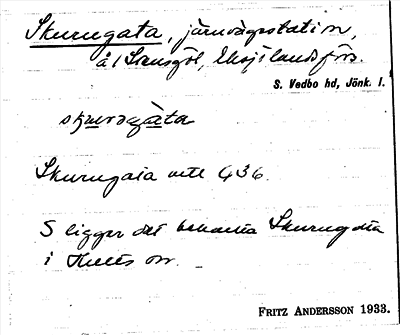 Skurugata, järnvägsstation,
å 1 Sransgöl, Eksjö landsförs.
S. Vedbo hd, Jönk. l.
skurugata
Skurugata vttl G36.
S ligger det bekanta Skurugata
i Hults sn.
FRITZ ANDERSSON 1933.